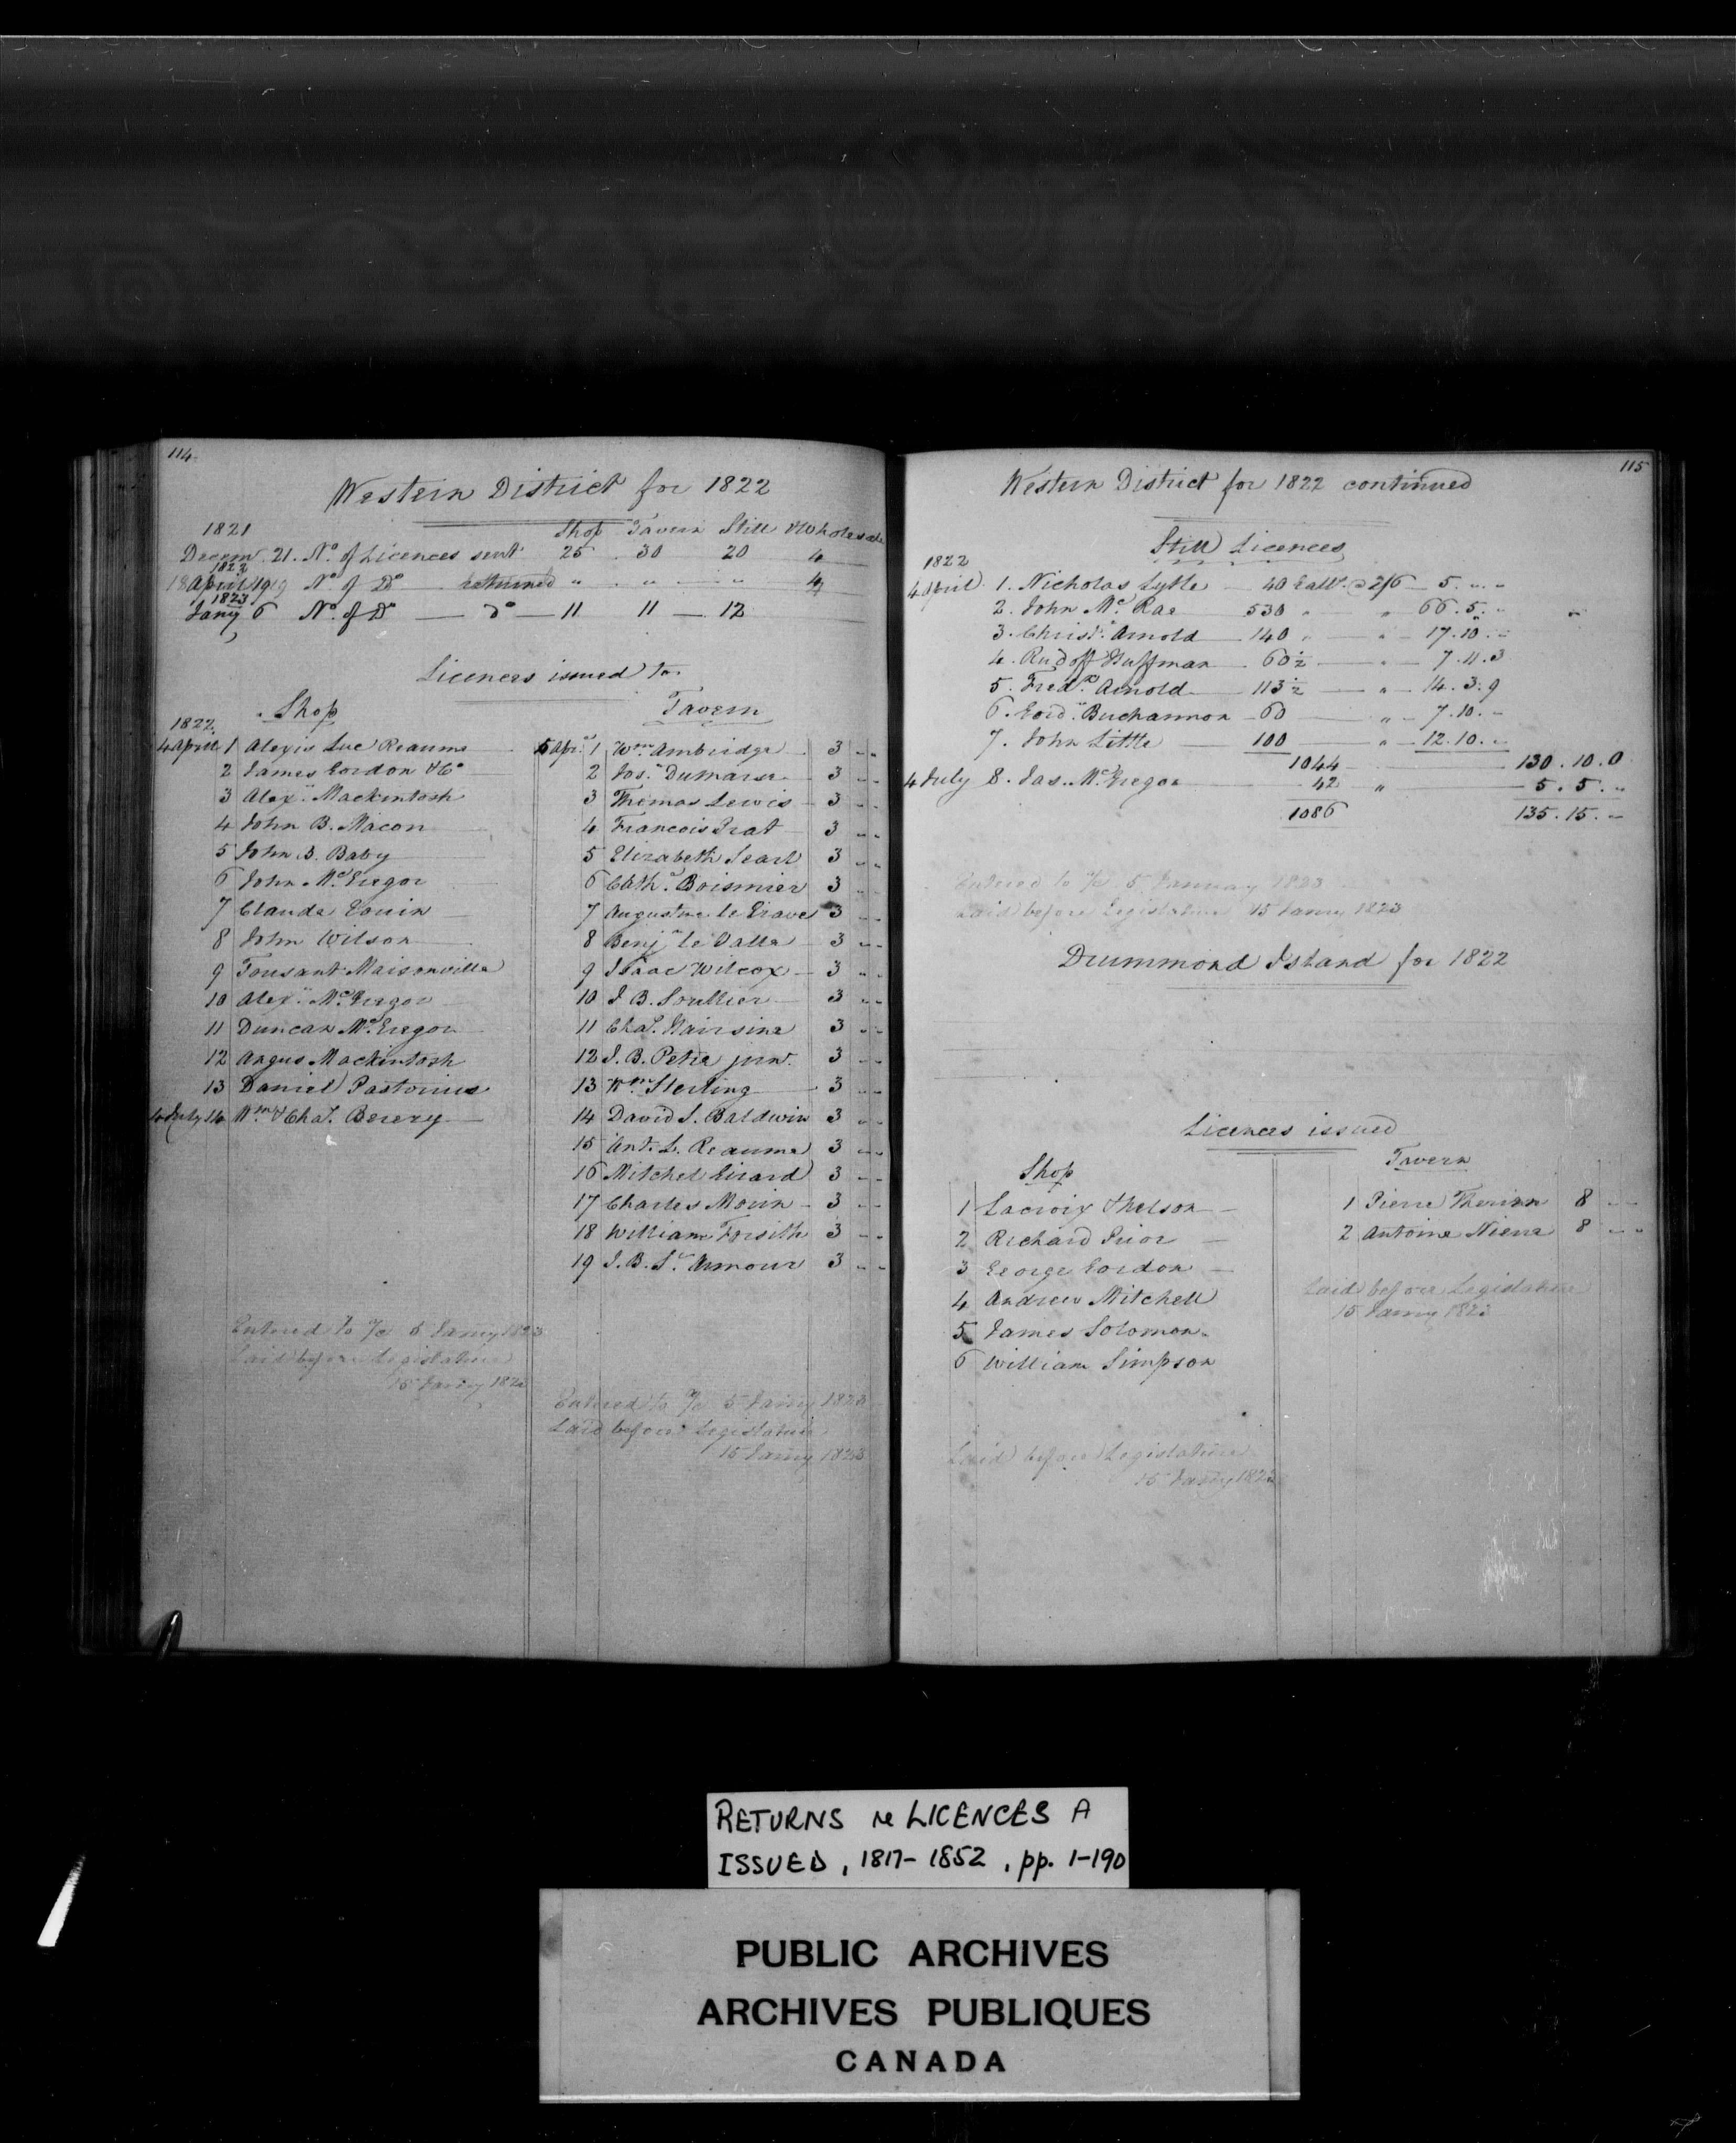 114
Western District for 1822
1821 Shop Tavern Still Wholesale
Decemr. 21. No. of Licences sent 25 30 20 4
1823
April No. of Do returned " " " 4
1823
Jany 6 No. of Do do 11 11 12
Licences issued to
Shop
1822
4 April 1 Alexis Luc Reaume
2 James Gordon & Co
3 Alexr. Mackintosh
4 John B. Macon
5 John B. Baby
6 John McGregor
7 Claude Gouin
8 John Wilson
9 Tousant Maisonville
10 Alexr. McGregor
11 Duncan McGregor
12 Angus Mackintosh
13 Daniel Pastorius
4 July 14 Wm. & Chas. Berczy
Entered to a/c 5 Janry 1823
Laid before Legislature
15 Janry 1823
Tavern
5 Apr. 1 Wm. Ambridge 3 " "
2 Jos. Dumarse 3 " "
3 Thomas Lewis 3 " "
4 Francois Prat 3 " "
5 Elizabeth Searl 3 " "
6 Cath. Boismier 3 " "
7 Augustine le Grave 3 " "
8 Benjn. le Valle 3 " "
9 Isaac Wilcox 3 " "
10 J. B. Soullier 3 " "
11 Chas. Hairsine 3 " "
12 J. B. Petre junr. 3 " "
13 Wm. Sterling 3 " "
14 David S. Baldwin 3 " "
15 Ant. L. Reaume 3 " "
16 Mitchel Girard 3 " "
17 Charles Morin 3 " "
18 William Forsith 3 " "
19 J. B. St. Armour 3 " "
Entered to a/c 5 Janry 1823
Laid before Legislature
15 Janry 1823
115
Western District for 1822 continued
Still Licences
1822
4 April 1. Nicholas Lytle 40 Galls. @ 2/6 5. " "
2. John McRae 530 " " 66. 5. "
3. Christr. Arnold 140 " " 17. 10. "
4. Rudoff Huffman 60½ " 7. 11. 3
5. Fredk. Arnold 113½ " 14. 3. 9
6. Gord. Buchannon 60 " 7. 10. "
7. John Little 100 " 12. 10. "
1044 130. 10. 0
4 July 8. Jas. McGregor 42 " 5. 5. "
1086 135. 15. "
Entered to a/c 5 January 1823
Laid before Legislature 15 Janry 1823
Drummond Island for 1822
Licences issued
Shop
1 Lacroix & Nelson
2 Richard Prior
3 George Gordon
4 Andrew Mitchell
5 James Solomon
6 William Simpson
Laid before Legislature
15 Janry 1823
Tavern
1 Pierre Therien 8 " "
2 Antoine 8 " "
Laid before Legislature
15 Janry 1823
RETURNS re LICENCES A
ISSUED, 1817-1852, pp. 1-190
PUBLIC ARCHIVES
ARCHIVES PUBLIQUES
CANADA